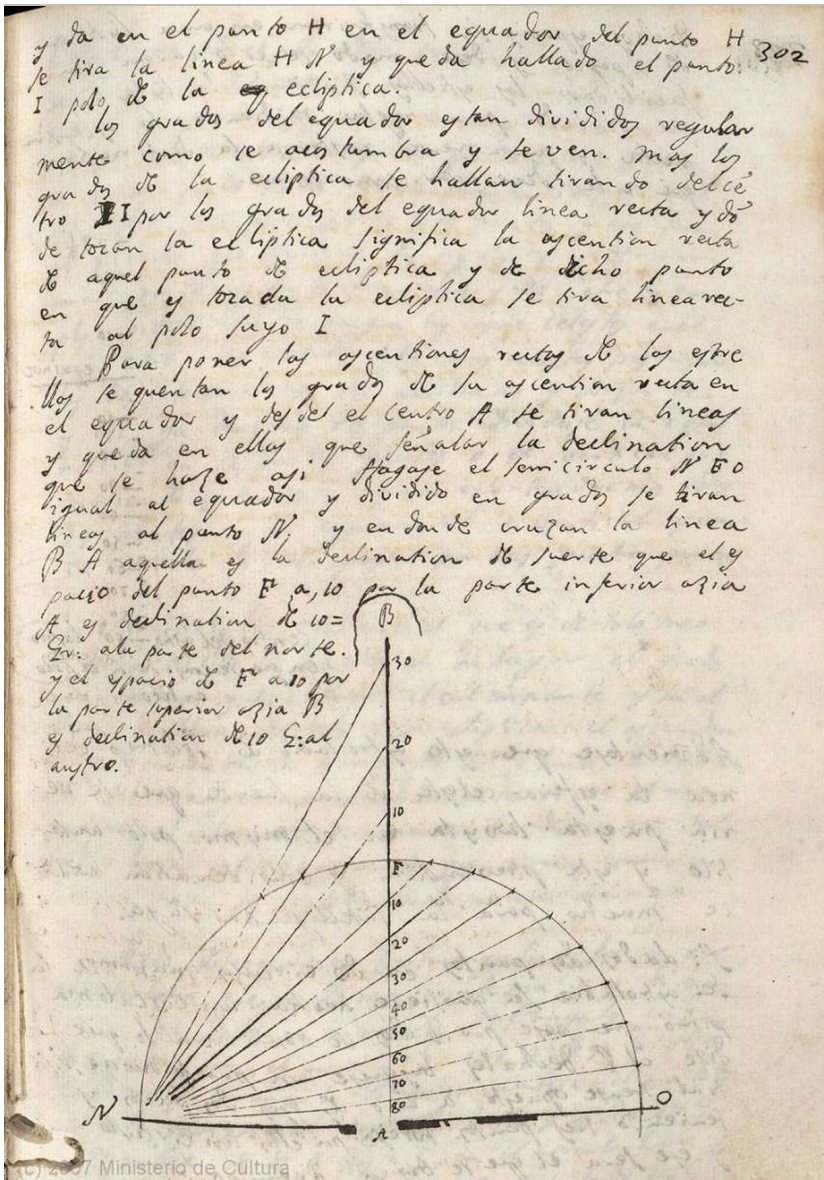 302
y da en el punto H en el equador del punto H
se tira la linea H N y queda hallado el punto
I polo de la eq ecliptica.
los grados del equador estan divididos regular
mente como se acostumbra y se ven. mas los
grados de la ecliptica se hallan tirando del cẽ
tro I por los grados del equador linea recta y dõ
de tocan la ecliptica significa la ascention recta
de aquel punto de ecliptica y de dicho punto
en que es tocada la ecliptica se tira linea rec-
ta al polo suyo I
Para poner las ascentiones rectas de las estre
llas se quentan los grados de su ascention recta en
el equador y desdel el centro A se tiran lineas
y queda en ellas que señalar la declination
que se haze asi Hagase el semicirculo N F O
igual al equador y dividido en grados se tiran
lineas al punto N, y en donde cruzan la linea
B A aquella es la declination de suerte que el es
pacio del punto F a, 10 por la parte inferior azia
A es declination de 10=
Gr: a la parte del norte.
y el espacio de F a 10 por
la parte superior azia B
es declination de 10 G: al
austro.
B
30
20
10
F
10
20
30
40
50
60
70
80
N
A
O
(c) 2007 Ministerio de Cultura